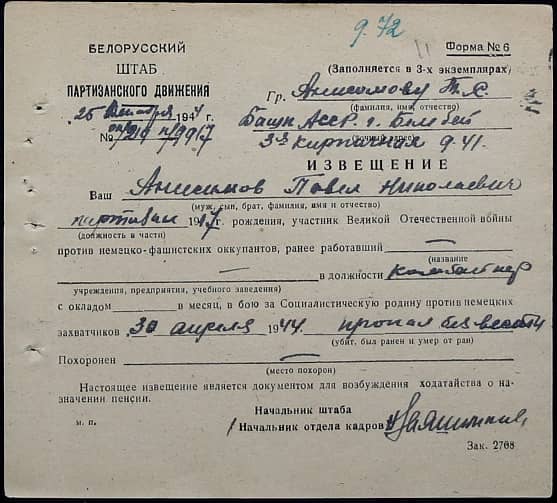 9.72
БЕЛОРУССКИЙ
ШТАБ
ПАРТИЗАНСКОГО ДВИЖЕНИЯ
Форма № 6
(Заполняется в 3-х экземплярах)
25 1944
№
Гр. Анисимову
(фамилия, имя, отчество)
Башк Асср. г. Белебей
(точный адрес)
кирпичная 9.41.
ИЗВЕЩЕНИЕ
Ваш Анисимов Павел Николаевич
(муж, сын, брат, фамилия, имя и отчество)
партизан 1917 г. рождения, участник Великой Отечественной войны
(должность в части)
против немецко-фашистских оккупантов, ранее работавший —
(название
— в должности
учреждения, предприятия, учебного заведения)
с окладом в месяц, в бою за Социалистическую родину против немецких
захватчиков 30 апреля 1944. пропал без вести
(убит, был ранен и умер от ран)
Похоронен —
(место похорон)
Настоящее извещение является документом для возбуждения ходатайства о на-
значении пенсии.
Начальник штаба
м. п.
Начальник отдела кадров
Зак. 2708